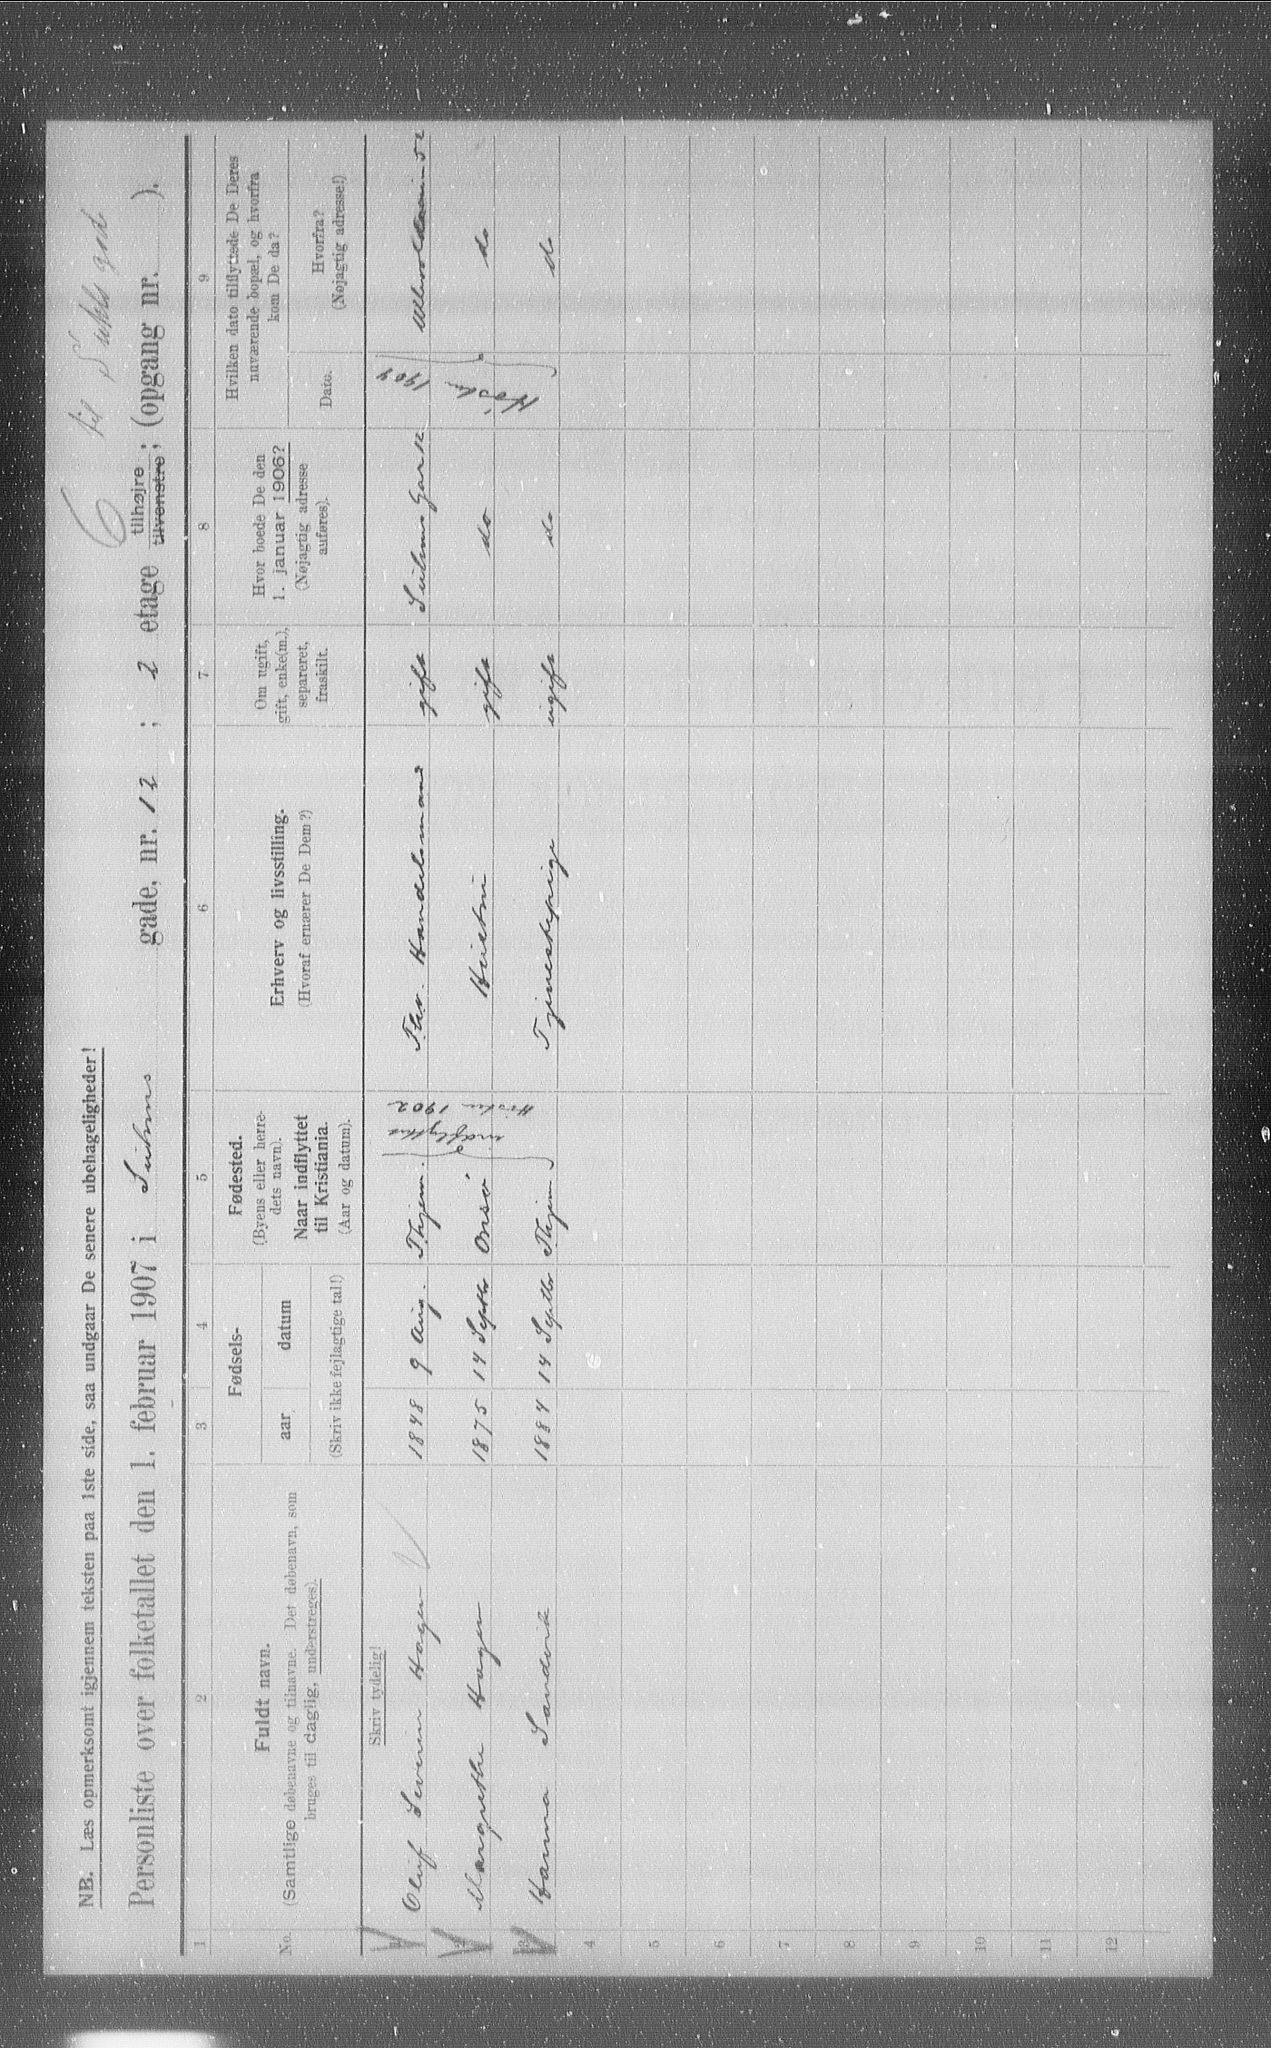 NB. Læs opmerksomt igjennem teksten paa 1ste side, saa undgaar De senere ubehageligheder!
6 til
Personliste over folketallet den 1. februar 1907 i Suhms gade, nr. 12 ; 2 etage tilhøjre tilvenstre ; (opgang nr. ).
1 2 3 4 5 6 7 8 9
No.
Fuldt navn.
(Samtlige døbenavne og tilnavne. Det døbenavn, som
bruges til daglig, understreges).
Fødsels-
aar datum
(Skriv ikke fejlagtige tal!)
Fødested.
(Byens eller herre-
dets navn).
Naar indflyttet
til Kristiania.
(Aar og datum).
Erhverv og livsstilling.
(Hvoraf ernærer De Dem?)
Om ugift,
gift, enke(m.),
separeret,
fraskilt.
Hvor boede De den
1. januar 1906?
(Nøjagtig adresse
anføres).
Hvilken dato tilflyttede De Deres
nuværende bopæl, og hvorfra
kom De da?
Dato.
Hvorfra?
(Nøjagtig adresse!)
Skriv tydelig!
1 Oluf Severin Hagen 1848 9 Aug. Thjem. indflyttet Høsten 1902 Handelsmand gift Suhms Gade 12 Høsten 1904
2 Margrethe Hagen 1875 14 Septbr Onsø Hustru gift do do
3 Hanna Sandvik 1884 14 Septbr Thjem Tjenestepige ugift do do
4
5
6
7
8
9
10
11
12